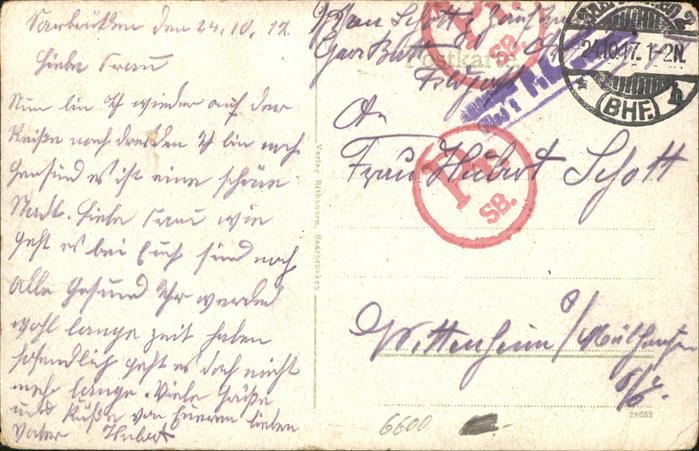 Saarbrücken den 24.10.17
Liebe Frau
Nun bin Ich wieder auf der
Reiße nach Dresden Ich bin noch
Gesund es ist eine schöne
Stadt. Liebe Frau wie
geht es bei Euch sind noch
Alle Gesund Ihr werdet
wohl lange zeit haben
hofendlich geht es doch nicht
mehr lange. Viele Grüße
und Küße von Eueren lieben
Vater Hubert
Schott
Gar. Batt.
Postkarte
Feldpost
24.10.17. 1-2N.
(BHF.)
h
An
Frau Hubert Schott
SB.
F.a.
SB.
Wittenheim b/Mülhausen
i/E.
Verlag Saarbrücken
6600
28652